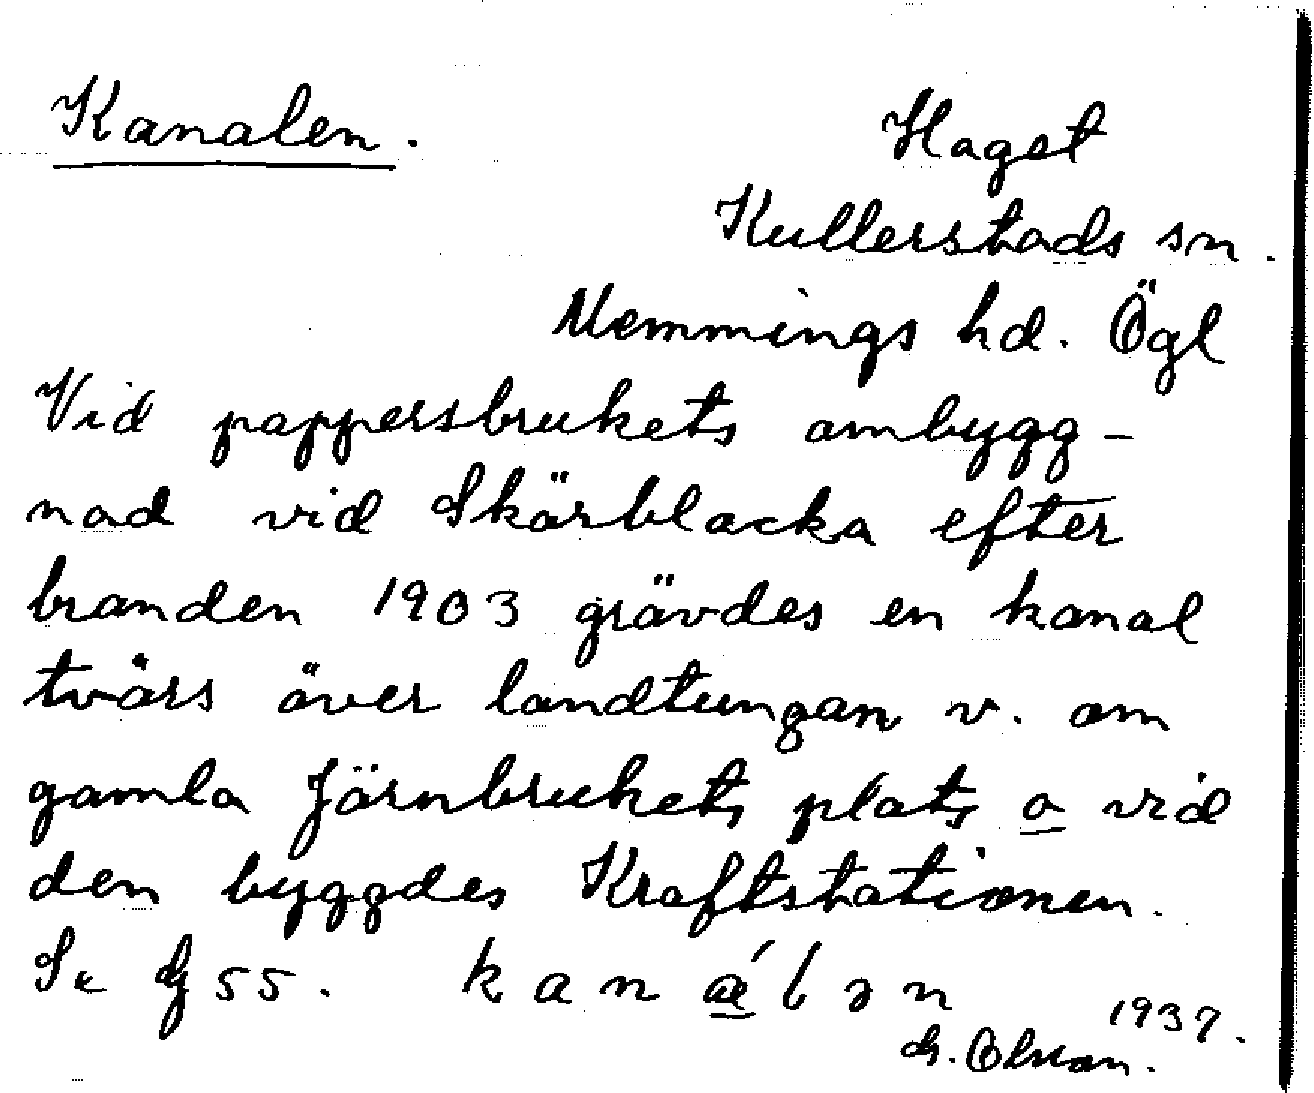 Kanalen.
Haget
Kullerstads sn.
Memmings hd. Ögl
Vid pappersbrukets ombygg-
nad vid Skärblacka efter
branden 1903 grävdes en kanal
tvärs över landtungan v. om
gamla Järnbrukets plats o vid
den byggdes Kraftstationen.
Se G 55. kanálən
1937.
G. Olsson.